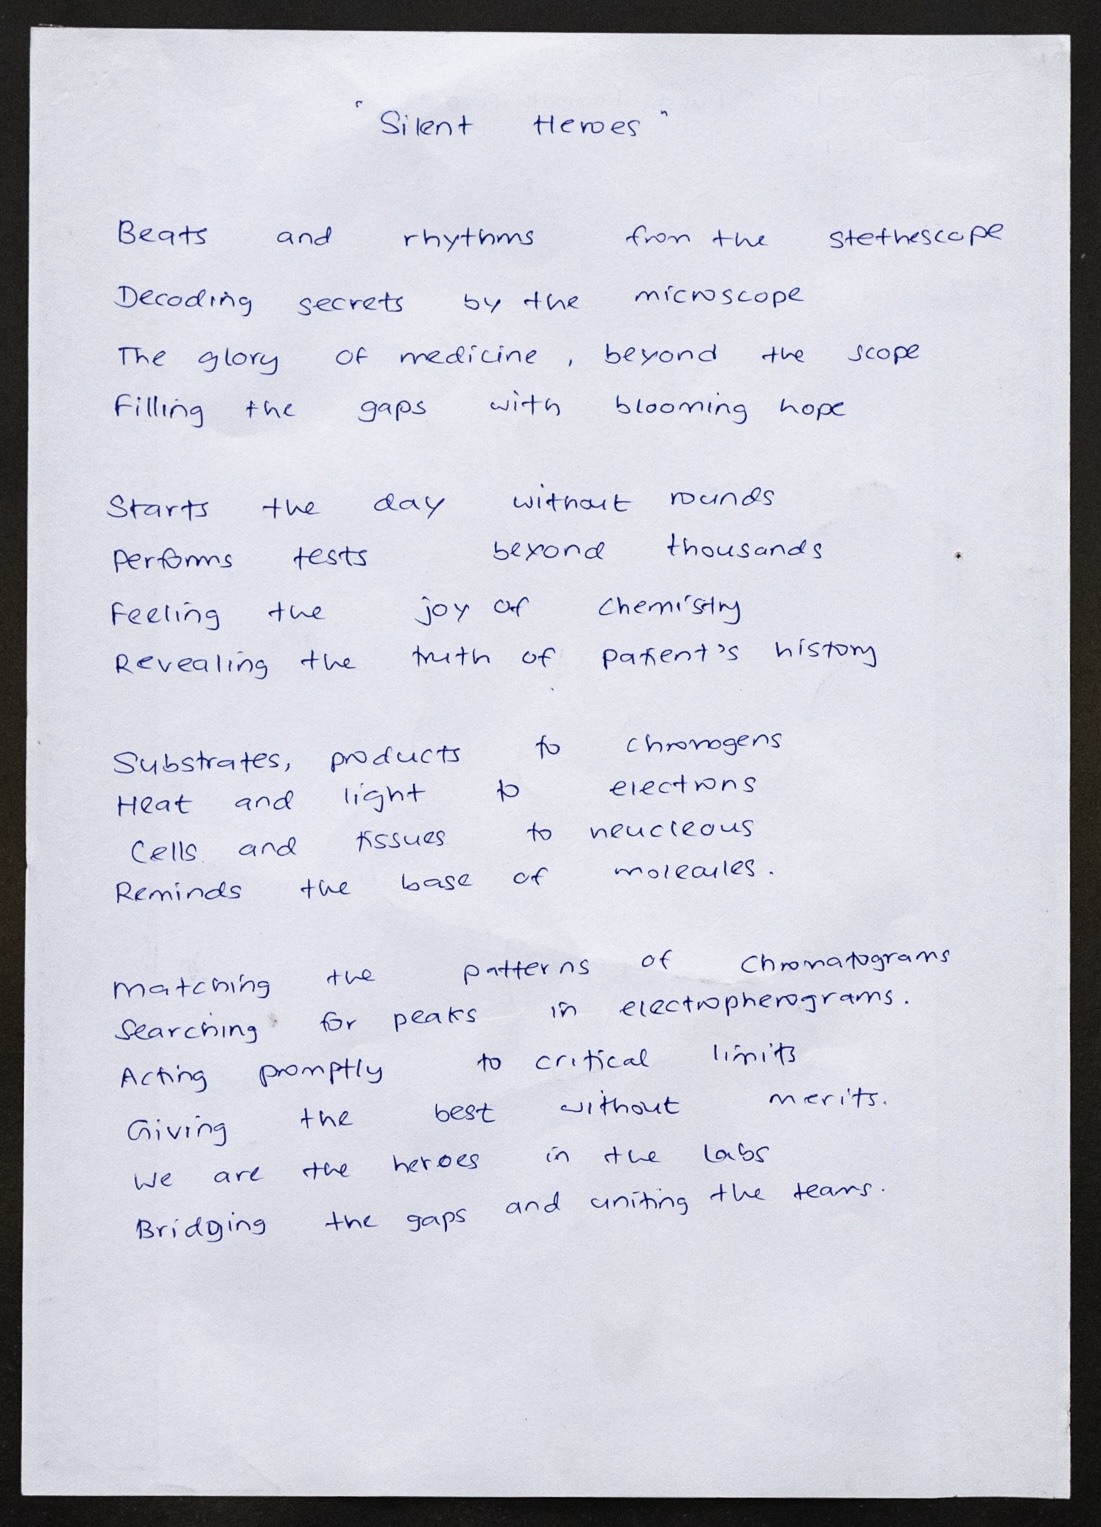 "Silent Heroes"
Beats and rhythms from the stethescope
Decoding secrets by the microscope
The glory of medicine, beyond the scope
Filling the gaps with blooming hope
Starts the day without rounds
Performs tests beyond thousands
Feeling the joy of chemistry
Revealing the truth of patient's history
Substrates, products to chromogens
Heat and light to electrons
Cells and tissues to neucleous
Reminds the base of molecules.
Matching the patterns of chromatograms
Searching for peaks in electropherograms.
Acting promptly to critical limits
Giving the best without merits.
We are the heroes in the labs
Bridging the gaps and uniting the teams.